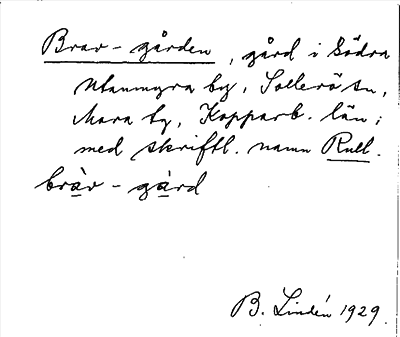 Brav-gården, gård i Södra
Utanmyra by, Sollerö sn,
Mora tg, Kopparb. län;
med skriftl. namn Rull.
bràv-gàrd
B. Lindén 1929.